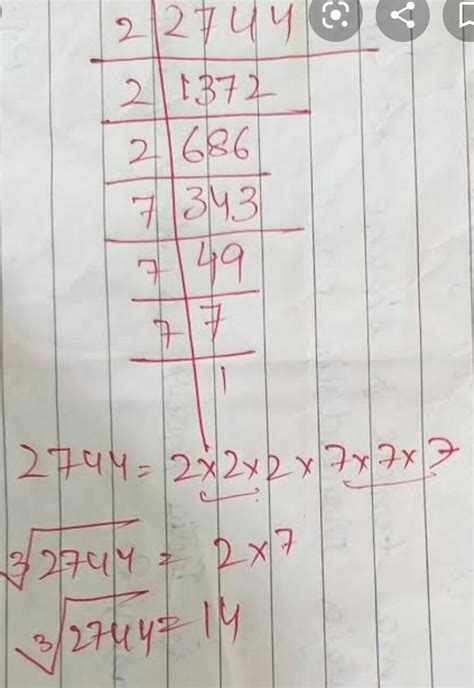 2 2744
2 1372
2 686
7 343
7 49
7 7
1
2744 = 2×2×2×7×7×7
∛2744 = 2×7
∛2744 = 14